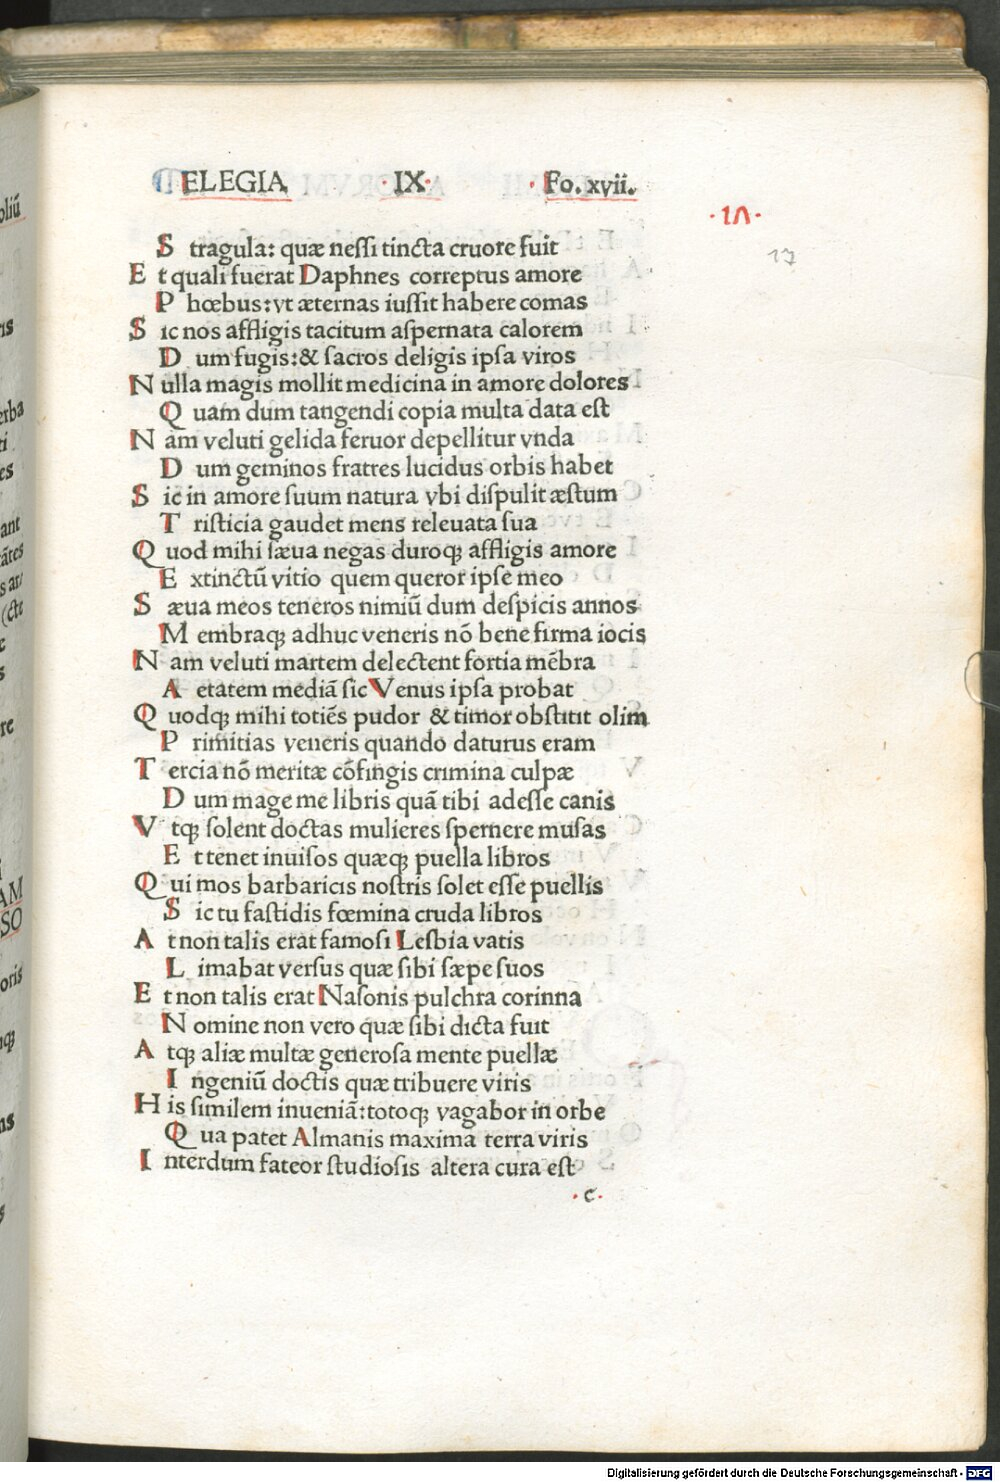 ELEGIA ·IX· ·Fo.xvii.
·17·
17
S tragula: quæ nessi tincta cruore fuit
E t quali fuerat Daphnes correptus amore
P hœbus: vt æternas iussit habere comas
S ic nos affligis tacitum aspernata calorem
D um fugis: & sacros deligis ipsa viros
N ulla magis mollit medicina in amore dolores
Q uam dum tangendi copia multa data est
N am veluti gelida feruor depellitur vnda
D um geminos fratres lucidus orbis habet
S ic in amore suum natura vbi dispulit æstum
T risticia gaudet mens releuata sua
Q uod mihi sæua negas duroqꝫ affligis amore
E xtinctū vitio quem queror ipse meo
S æua meos teneros nimiū dum despicis annos
M embraqꝫ adhuc veneris nō bene firma iocis
N am veluti martem delectent fortia mēbra
A etatem mediā sic Venus ipsa probat
Q uodqꝫ mihi totiēs pudor & timor obstitit olim
P rimitias veneris quando daturus eram
T ercia nō meritæ cōfingis crimina culpæ
D um mage me libris quā tibi adesse canis
V tqꝫ solent doctas mulieres spernere musas
E t tenet inuisos quæqꝫ puella libros
Q ui mos barbaricis nostris solet esse puellis
S ic tu fastidis fœmina cruda libros
A t non talis erat famosi Lesbia vatis
L imabat versus quæ sibi sæpe suos
E t non talis erat Nasonis pulchra corinna
N omine non vero quæ sibi dicta fuit
A tqꝫ aliæ multæ generosa mente puellæ
I ngeniū doctis quæ tribuere viris
H is similem inueniā: totoqꝫ vagabor in orbe
Q ua patet Almanis maxima terra viris
I nterdum fateor studiosis altera cura est
·c·
Digitalisierung gefördert durch die Deutsche Forschungsgemeinschaft - DFG